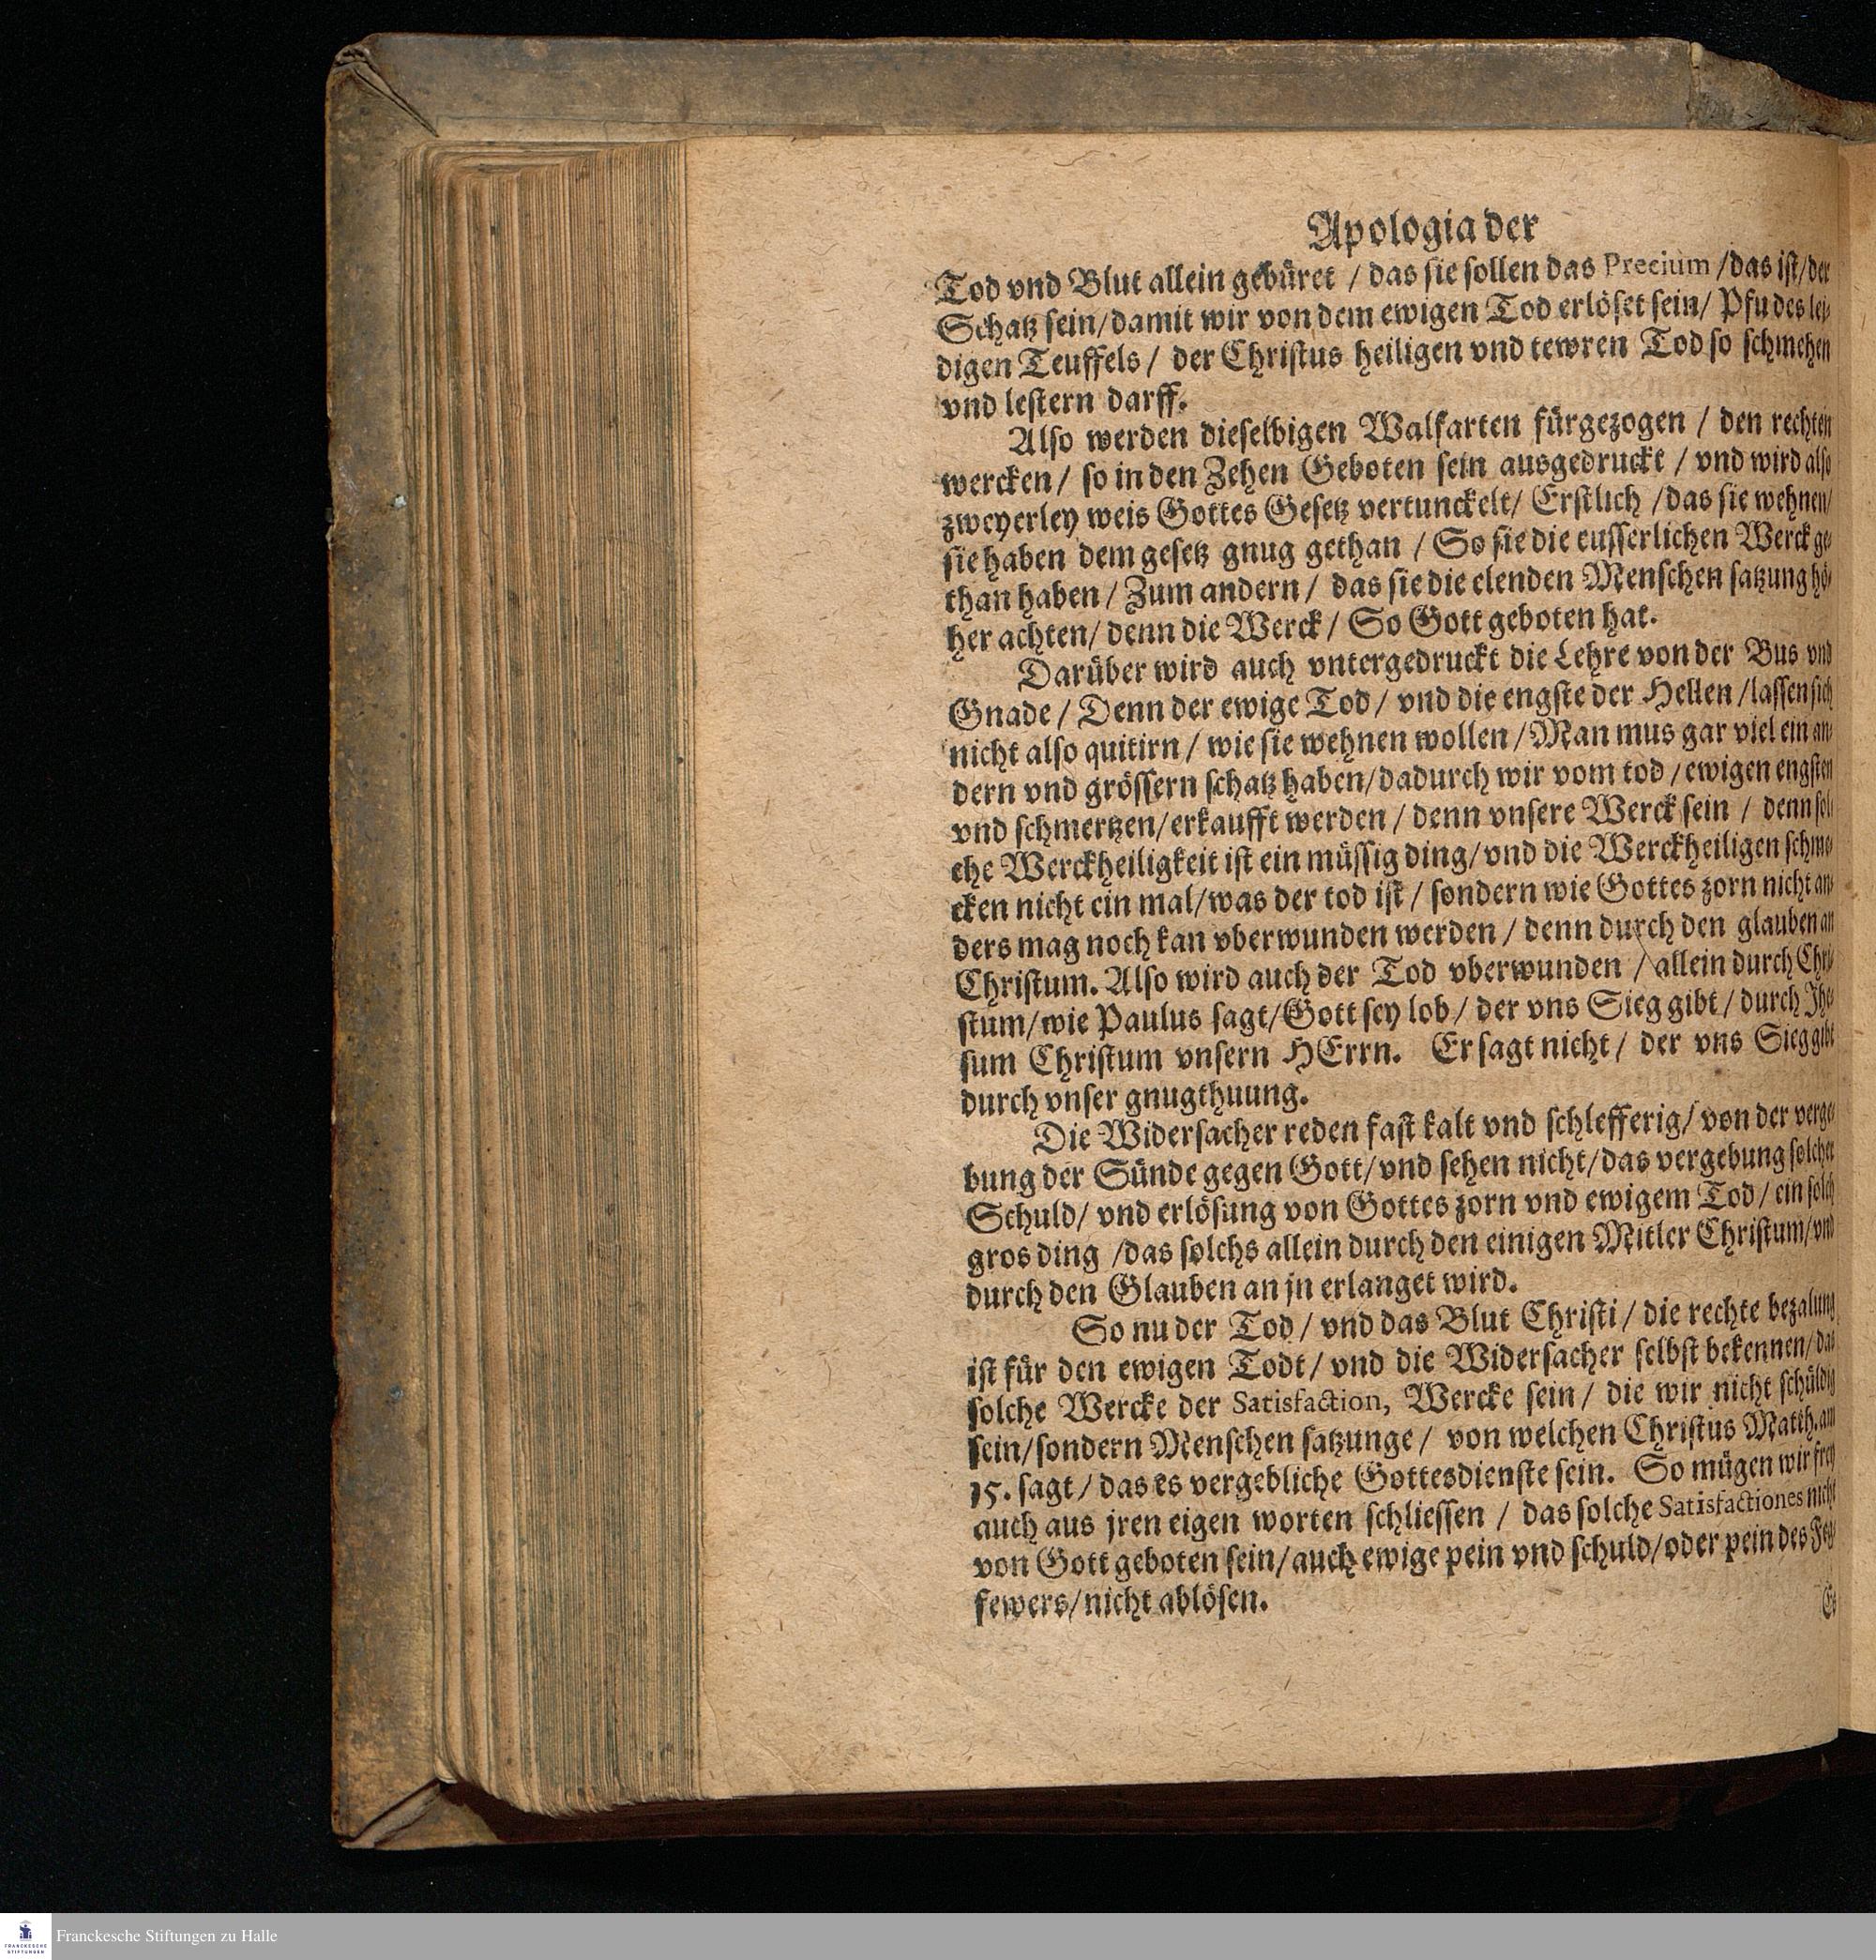 Apologia der
Tod vnd Blut allein gebüret / das sie sollen das Precium / das ist / der
Schatz sein / damit wir von dem ewigen Tod erlöset sein / Pfu des lei-
digen Teuffels / der Christus heiligen vnd tewren Tod so schmehen
vnd lestern darff.
Also werden dieselbigen Walfarten fürgezogen / den rechten
wercken / so in den Zehen Geboten sein ausgedruckt / vnd wird also
zweyerley weis Gottes Gesetz vertunckelt / Erstlich / das sie wehnen /
sie haben dem gesetz gnug gethan / So sie die eusserlichen Werck ge-
than haben / Zum andern / das sie die elenden Menschen satzung hö-
her achten / denn die Werck / So Gott geboten hat.
Darüber wird auch vntergedruckt die Lehre von der Bus vnd
Gnade / Denn der ewige Tod / vnd die engste der Hellen / lassen sich
nicht also quitirn / wie sie wehnen wollen / Man mus gar viel ein an-
dern vnd grössern schatz haben / dadurch wir vom tod / ewigen engsten
vnd schmertzen / erkaufft werden / denn vnsere Werck sein / denn sol-
che Werckheiligkeit ist ein müssig ding / vnd die Werckheiligen schme-
cken nicht ein mal / was der tod ist / sondern wie Gottes zorn nicht an-
ders mag noch kan vberwunden werden / denn durch den glauben an
Christum. Also wird auch der Tod vberwunden / allein durch Chri-
stum / wie Paulus sagt / Gott sey lob / der vns Sieg gibt / durch Jhe-
sum Christum vnsern HErrn. Er sagt nicht / der vns Sieg gibt
durch vnser gnugthuung.
Die Widersacher reden fast kalt vnd schlefferig / von der verge-
bung der Sünde gegen Gott / vnd sehen nicht / das vergebung solcher
Schuld / vnd erlösung von Gottes zorn vnd ewigem Tod / ein solch
gros ding / das solchs allein durch den einigen Mitler Christum / vnd
durch den Glauben an jn erlanget wird.
So nu der Tod / vnd das Blut Christi / die rechte bezalung
ist für den ewigen Todt / vnd die Widersacher selbst bekennen / das
solche Wercke der Satisfaction, Wercke sein / die wir nicht schüldig
sein / sondern Menschen satzunge / von welchen Christus Matth. am
15. sagt / das es vergebliche Gottesdienste sein. So mügen wir frey
auch aus jren eigen worten schliessen / das solche Satisfactiones nicht
von Gott geboten sein / auch ewige pein vnd schuld / oder pein des Feg-
fewers / nicht ablösen.
Es
Franckesche Stiftungen zu Halle
FRANCKESCHE
STIFTUNGEN